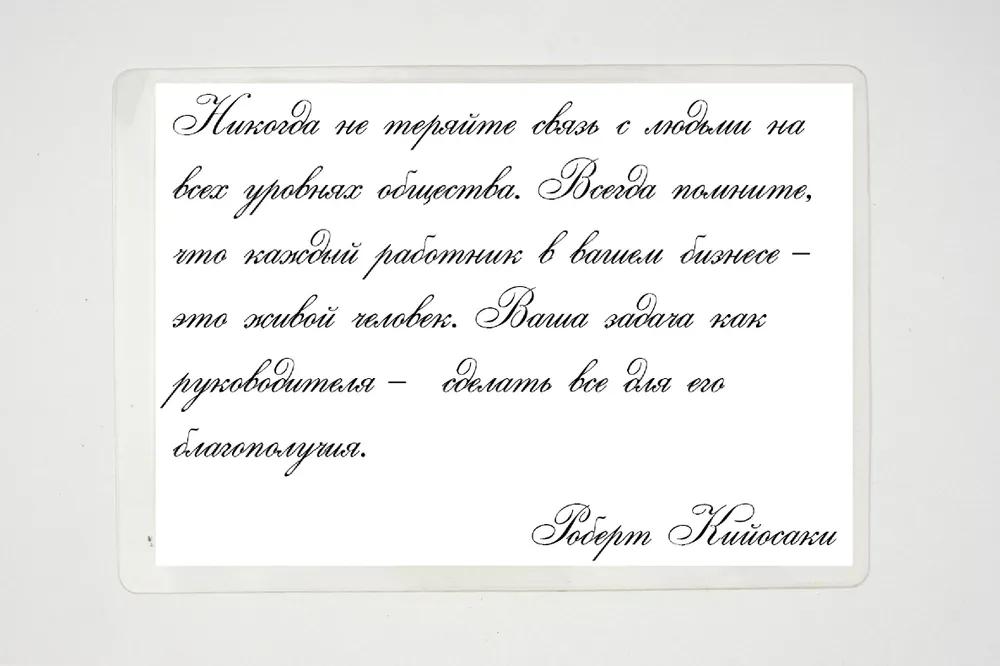 Никогда не теряйте связь с людьми на
всех уровнях общества. Всегда помните,
что каждый работник в вашем бизнесе –
это живой человек. Ваша задача как
руководителя – сделать все для его
благополучия.
Роберт Кийосаки